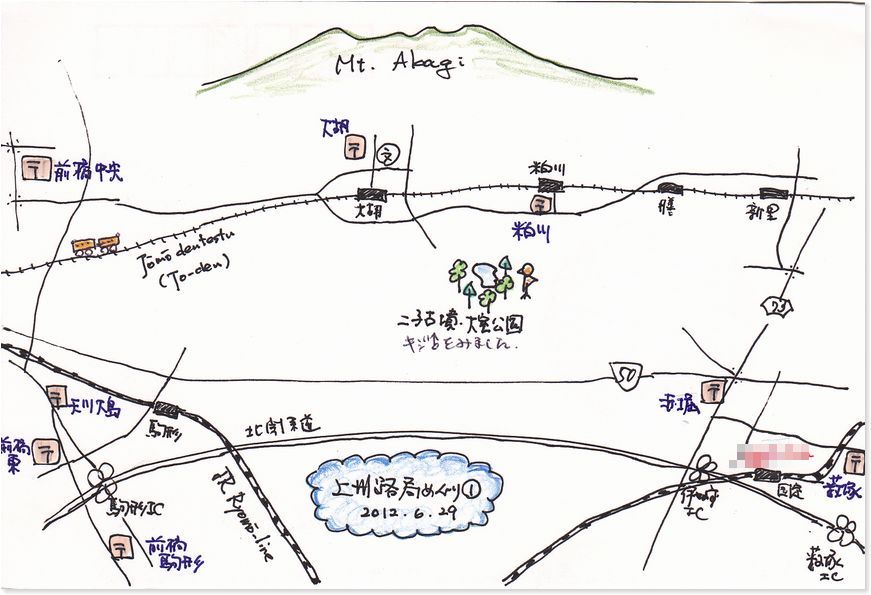 Mt. Akagi
大胡
〒
文
〒
前橋中央
粕川
大胡
〒
膳
新里
粕川
Jōmō dentetsu
(Jo-den)
73
二子古墳・大室公園
キジをみました.
50
〒
天川大島
駒形
〒
赤堀
北関東道
前橋東
〒
駒形IC
JR Ryomo-line
上州路局めぐり①
2012.6.29
伊勢崎IC
国定
〒
薮塚
〒
前橋
駒形
薮塚
IC